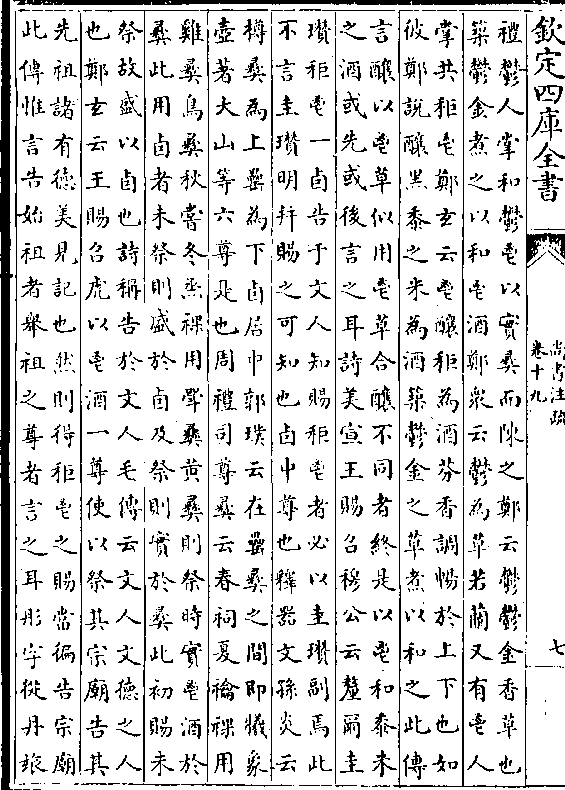 欽定四庫全書
尚書注疏
卷十九
七
禮鬱人掌和鬱鬯以實彞而陳之鄭云鬱鬱金香草也
築鬱金煮之以和鬯酒鄭衆云鬱為草若蘭又有鬯人
掌共秬鬯鄭玄云鬯釀秬為酒芬香調暢於上下也如
彼鄭說釀黑黍之米為酒築鬱金之草煮以和之此傳
言釀以鬯草似用鬯草合釀不同者終是以鬯和黍米
之酒或先或後言之耳詩美宣王賜召穆公云釐爾圭
瓚秬鬯一卣告于文人知賜秬鬯者必以圭瓚副焉此
不言圭瓚明并賜之可知也卣中尊也釋器文孫炎云
樽彞為上罍為下卣居中郭璞云在罍彞之間即犧象
壺著大山等六尊是也周禮司尊彞云春祠夏禴祼用
雞彞鳥彞秋嘗冬烝祼用斝彞黃彞則祭時實鬯酒於
彞此用卣者未祭則盛於卣及祭則實於彞此初賜未
祭故盛以卣也詩稱告於文人毛傳云文人文德之人
也鄭玄云王賜召虎以鬯酒一尊使以祭其宗廟告其
先祖諸有德美見記也然則得秬鬯之賜當徧告宗廟
此傳惟言告始祖者舉祖之尊者言之耳彤字從丹旅